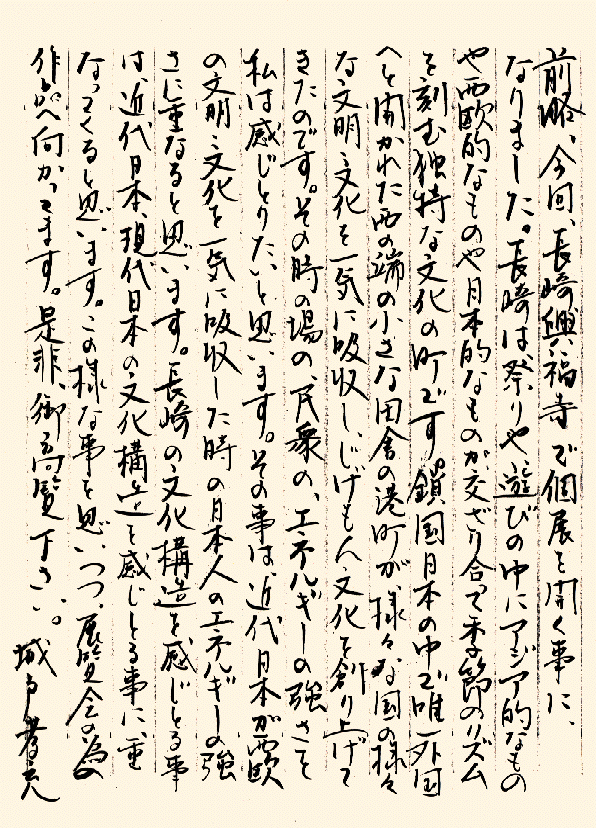 前略、今回、長崎興福寺で個展を開く事に、
なりました。長崎は祭りや遊びの中にアジア的なもの
や西欧的なものや日本的なものが交ざり合って季節のリズム
を刻む独特な文化の町です。鎖国日本の中で唯一外国
へと開かれた西の端の小さな田舎の港町が、様々な国の様々
な文明、文化を一気に吸収し、じげもん文化を創り上げて
きたのです。その時の場の、民衆の、エネルギーの強さを
私は感じとりたいと思います。その事は、近代日本が西欧
の文明、文化を一気に吸収した時の日本人のエネルギーの強
さに重なると思います。長崎の文化構造を感じとる事
は、近代日本、現代日本の文化構造を感じとる事に、重
なってくると思います。この様な事を思いつつ、展覧会の為の
作品へ向かってます。是非、御高覧下さい。
城